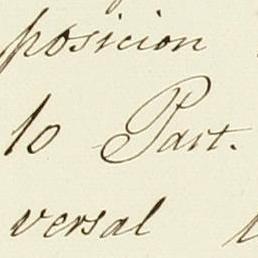 posicion
lo Part.
versal